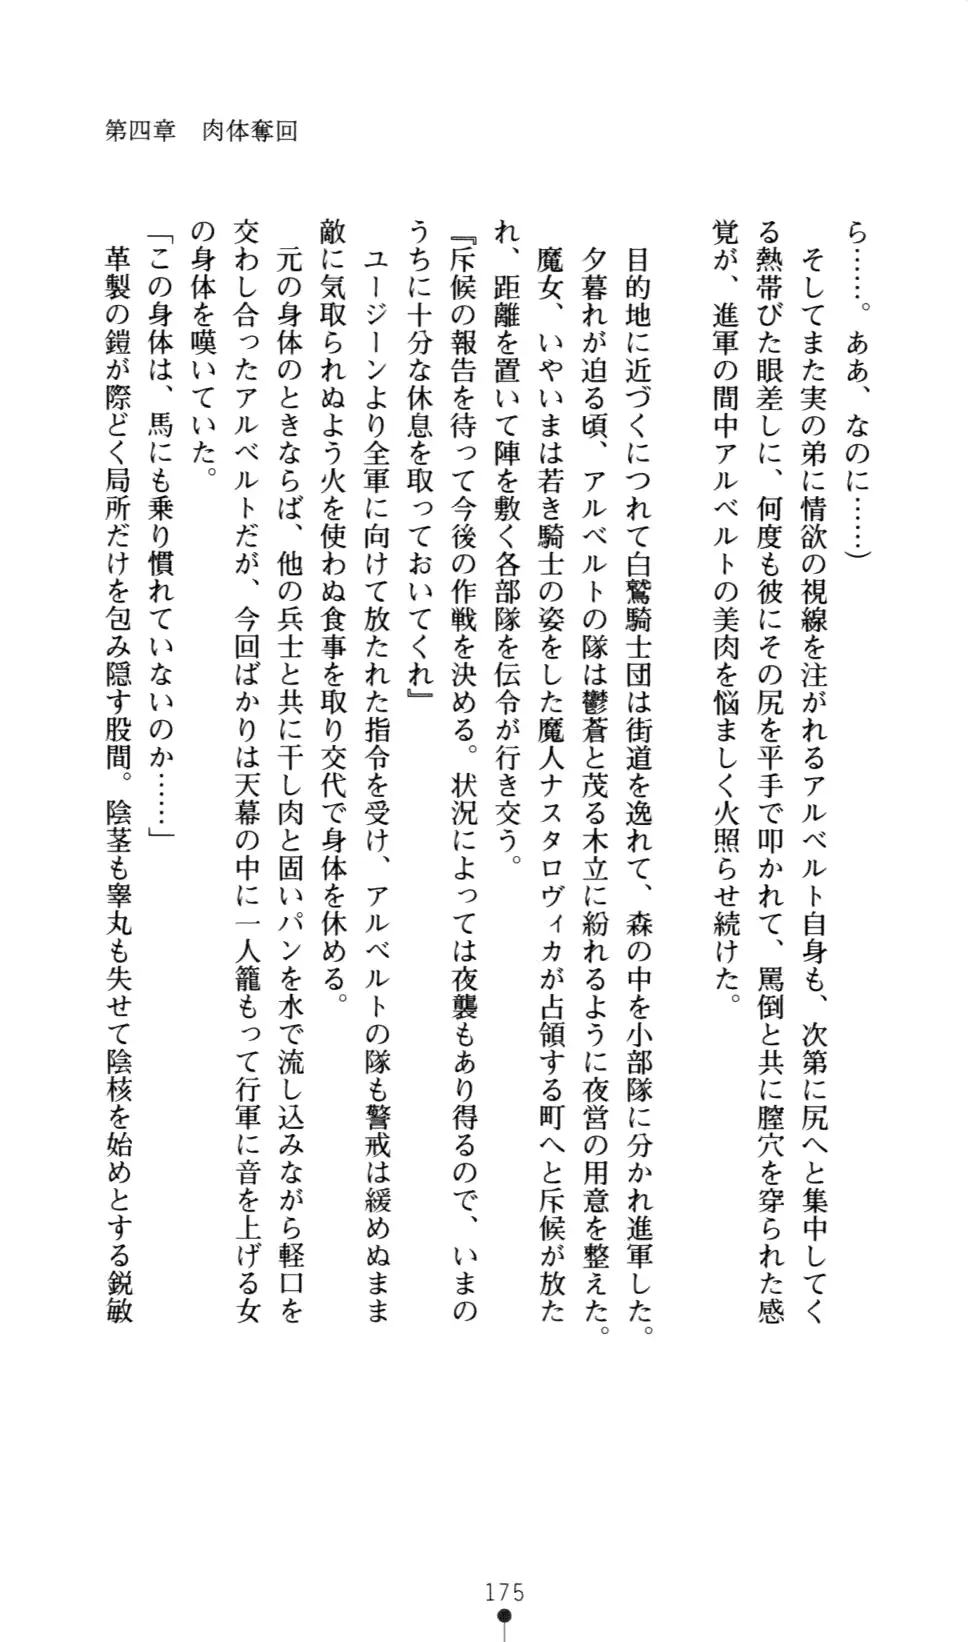 第四章　肉体奪回
ら……。ああ、なのに……）
　そしてまた実の弟に情欲の視線を注がれるアルベルト自身も、次第に尻へと集中してく
る熱帯びた眼差しに、何度も彼にその尻を平手で叩かれて、罵倒と共に膣穴を穿られた感
覚が、進軍の間中アルベルトの美肉を悩ましく火照らせ続けた。
　目的地に近づくにつれて白鷲騎士団は街道を逸れて、森の中を小部隊に分かれ進軍した。
　夕暮れが迫る頃、アルベルトの隊は鬱蒼と茂る木立に紛れるように夜営の用意を整えた。
　魔女、いやいまは若き騎士の姿をした魔人ナスタロヴィカが占領する町へと斥候が放た
れ、距離を置いて陣を敷く各部隊を伝令が行き交う。
『斥候の報告を待って今後の作戦を決める。状況によっては夜襲もあり得るので、いまの
うちに十分な休息を取っておいてくれ』
　ユージーンより全軍に向けて放たれた指令を受け、アルベルトの隊も警戒は緩めぬまま
敵に気取られぬよう火を使わぬ食事を取り交代で身体を休める。
　元の身体のときならば、他の兵士と共に干し肉と固いパンを水で流し込みながら軽口を
交わし合ったアルベルトだが、今回ばかりは天幕の中に一人籠もって行軍に音を上げる女
の身体を嘆いていた。
「この身体は、馬にも乗り慣れていないのか……」
　革製の鎧が際どく局所だけを包み隠す股間。陰茎も睾丸も失せて陰核を始めとする鋭敏
175